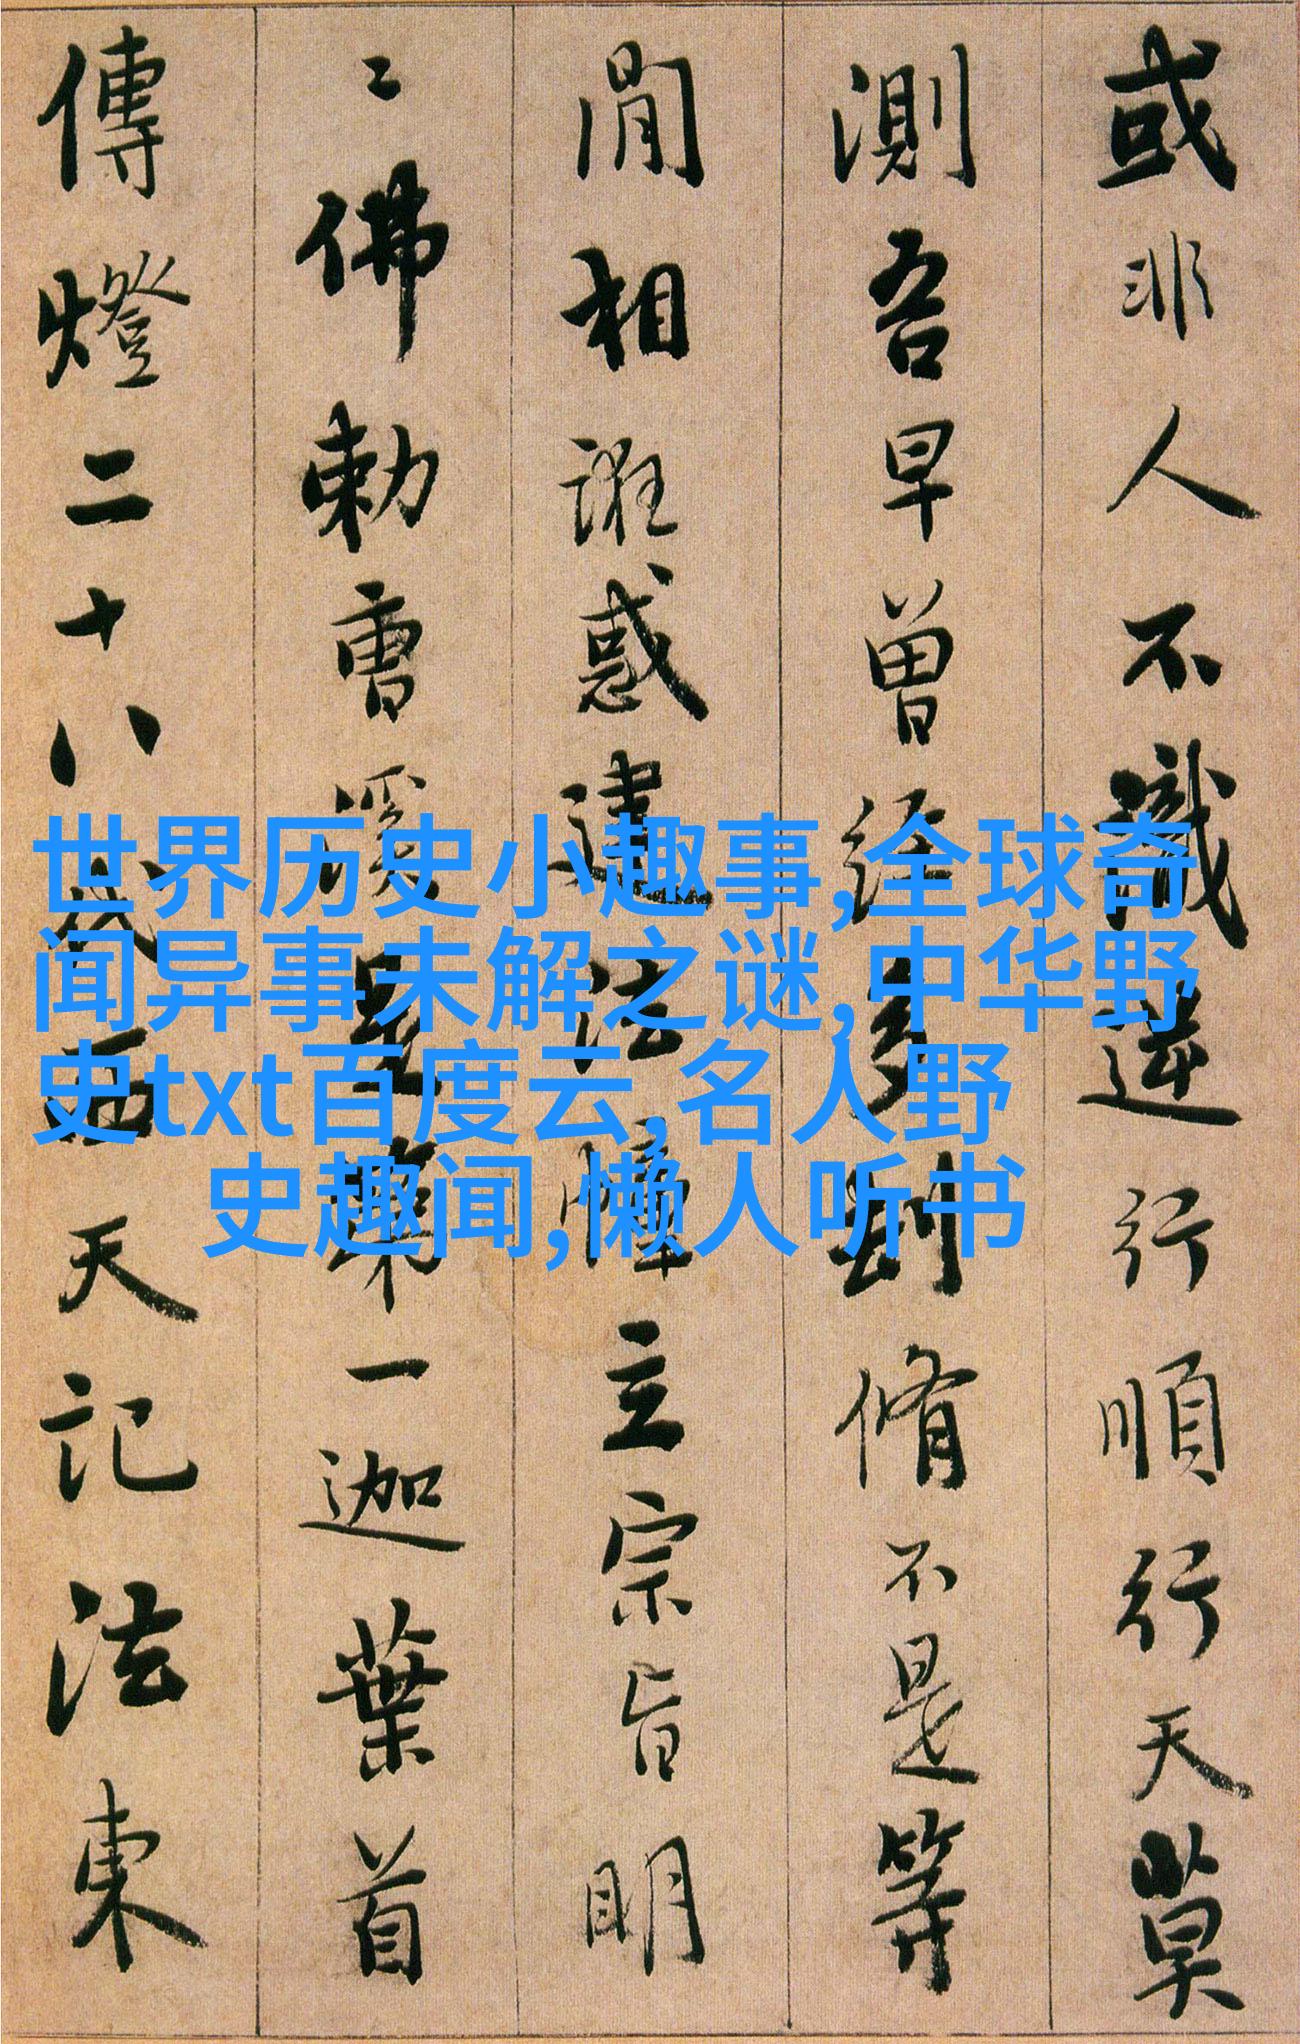 或非人不識逆行順行天莫
測吾早曾經多刧脩不是等
閒相誑惑建法幢立宗旨明
〻佛勅曹溪是第一迦葉首
傳燈二十八代西天記法東
世界历史小趣事,全球奇
闻异事未解之谜,中华野
史txt百度云,名人野
史趣闻,懒人听书